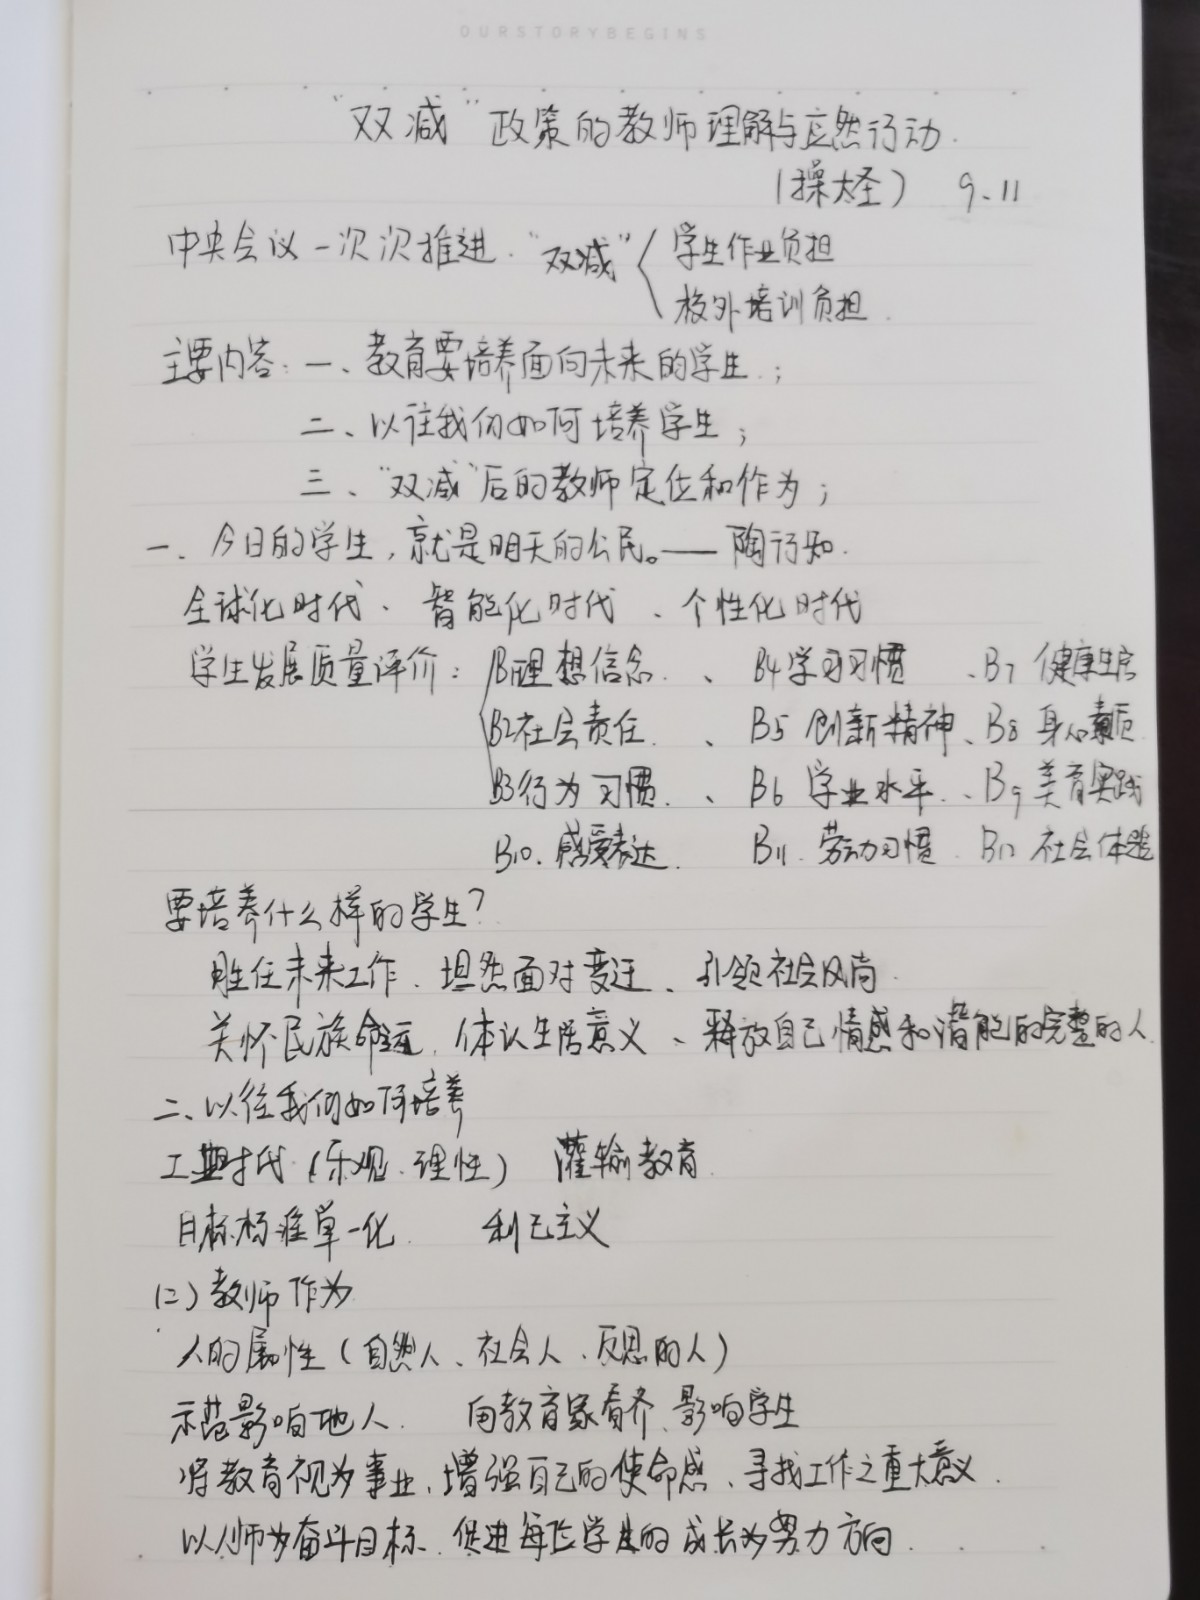 OURSTORYBEGINS
"双减"政策的教师理解与应然行动.
(操太圣) 9.11
中央会议一次次推进. "双减" 学生作业负担
校外培训负担.
主要内容: 一、教育要培养面向未来的学生.;
二、以往我们如何培养学生;
三、"双减"后的教师定位和作为;
一、今日的学生,就是明天的公民。——陶行知.
全球化时代、智能化时代、个性化时代
学生发展质量评价: B1理想信念.、B4学习习惯、B7健康生活
B2社会责任.、B5创新精神、B8身心素质
B3行为习惯.、B6学业水平.、B9美育实践
B10.感受表达. B11.劳动习惯. B12社会体验
要培养什么样的学生?
胜任未来工作、坦然面对变迁、引领社会风尚.
关怀民族命运,体认生活意义、释放自己情感和潜能的完整的人.
二、以往我们如何培养
工业时代(乐观、理性) 灌输教育.
目标标准单一化. 利己主义
(二)教师作为
人的属性(自然人、社会人、反思的人)
示范影响他人. 向教育家看齐、影响学生
将教育视为事业,增强自己的使命感、寻找工作之重大意义.
以人师为奋斗目标.促进每位学生的成长为努力方向.